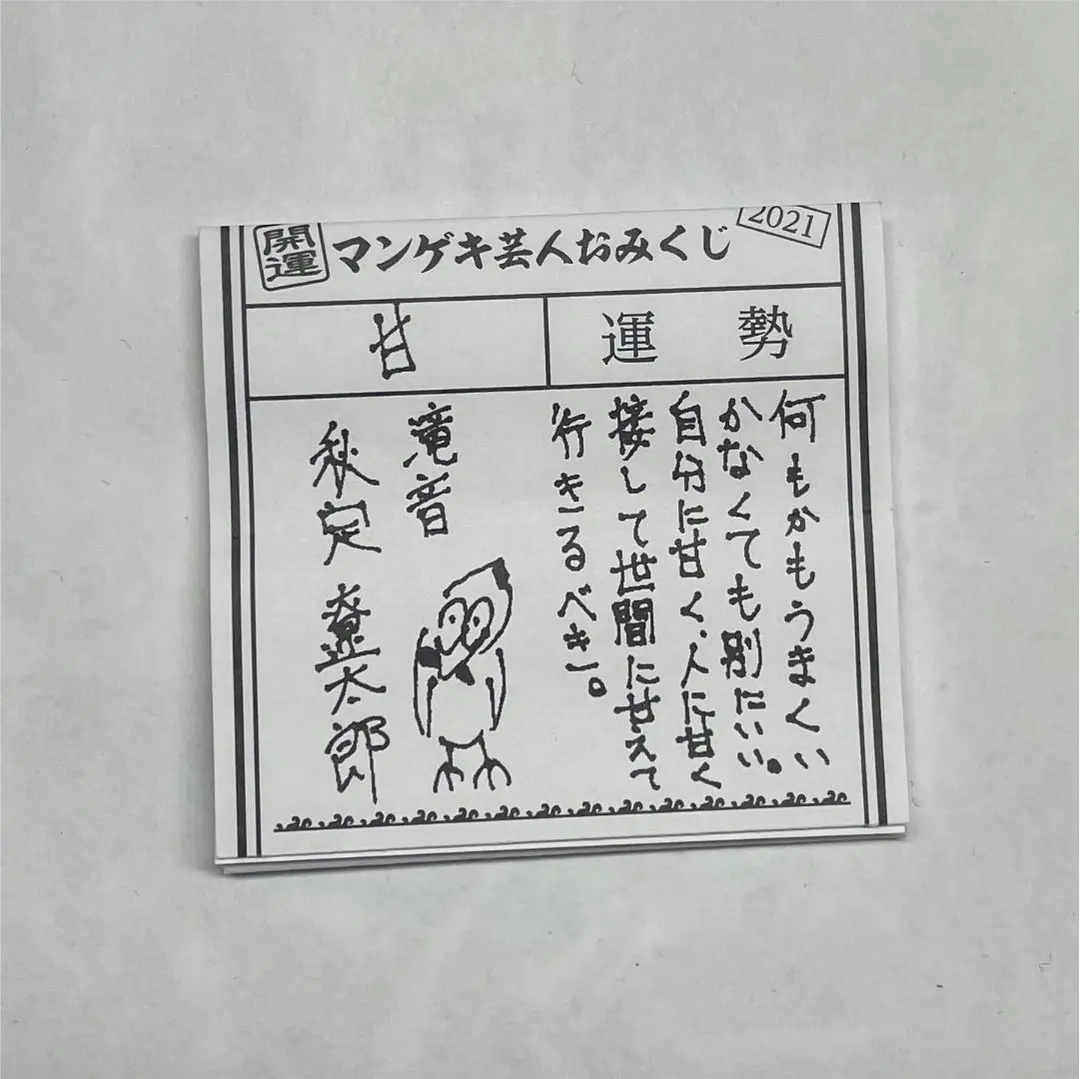 開運
マンゲキ芸人おみくじ
2021
運勢
甘
何もかもうまくい
かなくても別にいい。
自分に甘く、人に甘く
接して世間に甘えて
行きるべき。
滝音
秋定遼太郎